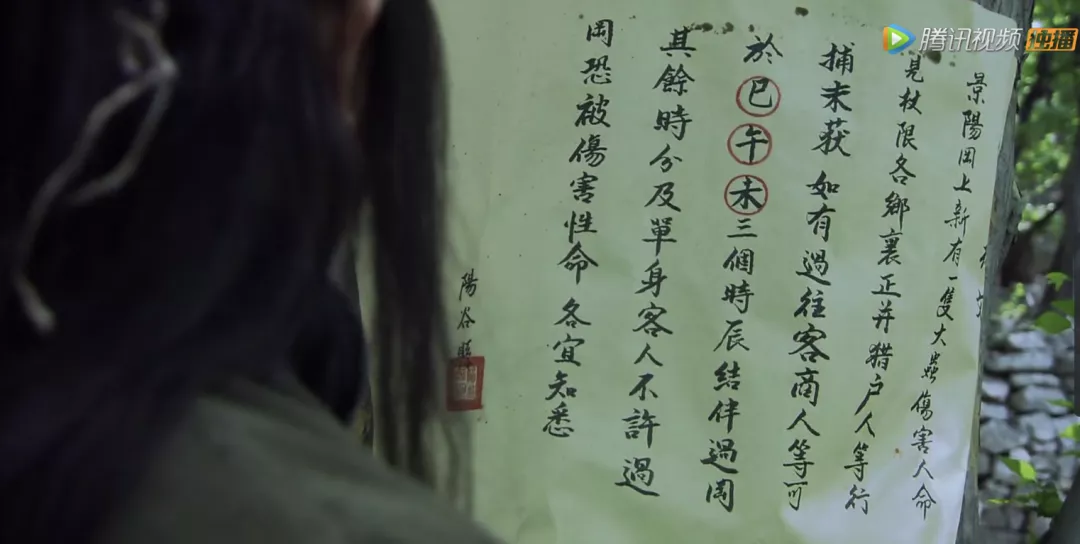 腾讯视频 独播
景陽岡上新有一隻大蟲傷害人命
見杖限各鄉襄正并猎户人等行
捕末获 如有過往客商人等可
於巳午未三個時辰結伴過岡
其餘時分及單身客人不許過
岡恐被傷害性命 各宜知悉
陽谷縣